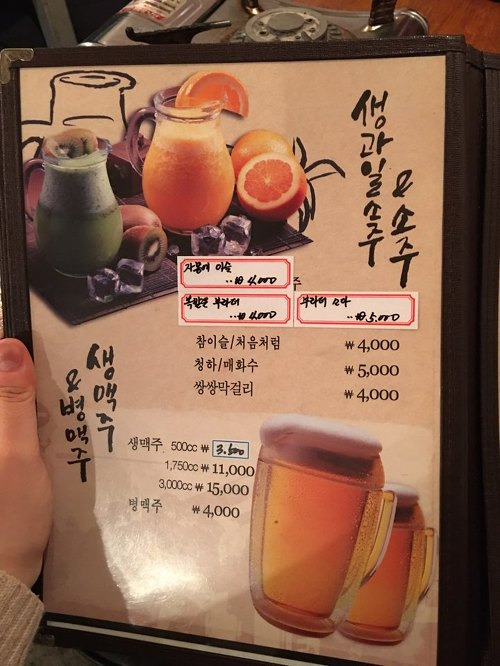 생과일소주
& 소주
자몽에 이슬
·· ₩4,000
주
복받은 부라더
·· ₩4,000
부라더 소다
·· ₩5.000
참이슬/처음처럼 ₩4,000
청하/매화수 ₩5,000
쌍쌍막걸리 ₩4,000
생맥주
& 병맥주
생맥주 500cc ₩ 3.500
1,750cc ₩ 11,000
3,000cc ₩ 15,000
병맥주 ₩4,000